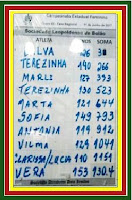 Campeonato Estadual Feminino
Sociedade Leopoldense de Bolão
ATLETA NOS SOMA
SILVA 126
TEREZINHA 140 266
MARLI 127 393
TEREZINHA 130 523
MARTA 121 644
SOFIA 149 793
ANTONIA 119 912
VILMA 129 1041
LARISSA 110 1151
VERA 153 1304